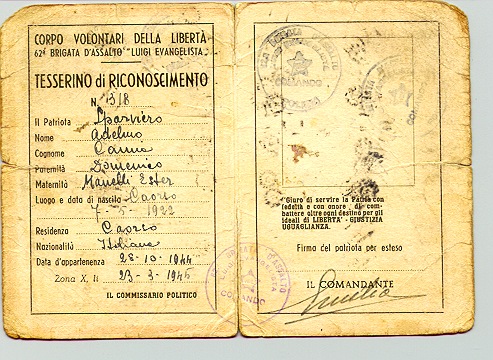 CORPO VOLONTARI DELLA LIBERTÀ
62ª BRIGATA D'ASSALTO "LUIGI EVANGELISTA"
TESSERINO di RICONOSCIMENTO
N. 1318
Il Patriota Sparviero
Nome Adelmo
Cognome
Paternità Domenico
Maternità Manelli Ester
Luogo e data di nascita Caorso
7-5-1922
Residenza Caorso
Nazionalità Italiana
Data d'appartenenza 28-10-1944
Zona X, li 23-3-1945
IL COMMISSARIO POLITICO
COMANDO
Giuro di servire la Patria con
fedeltà e con onore di com-
battere oltre ogni destino per gli
ideali di LIBERTA' - GIUSTIZIA
UGUAGLIANZA.
Firma del patriota per esteso
IL COMANDANTE
Emilio
COMANDO